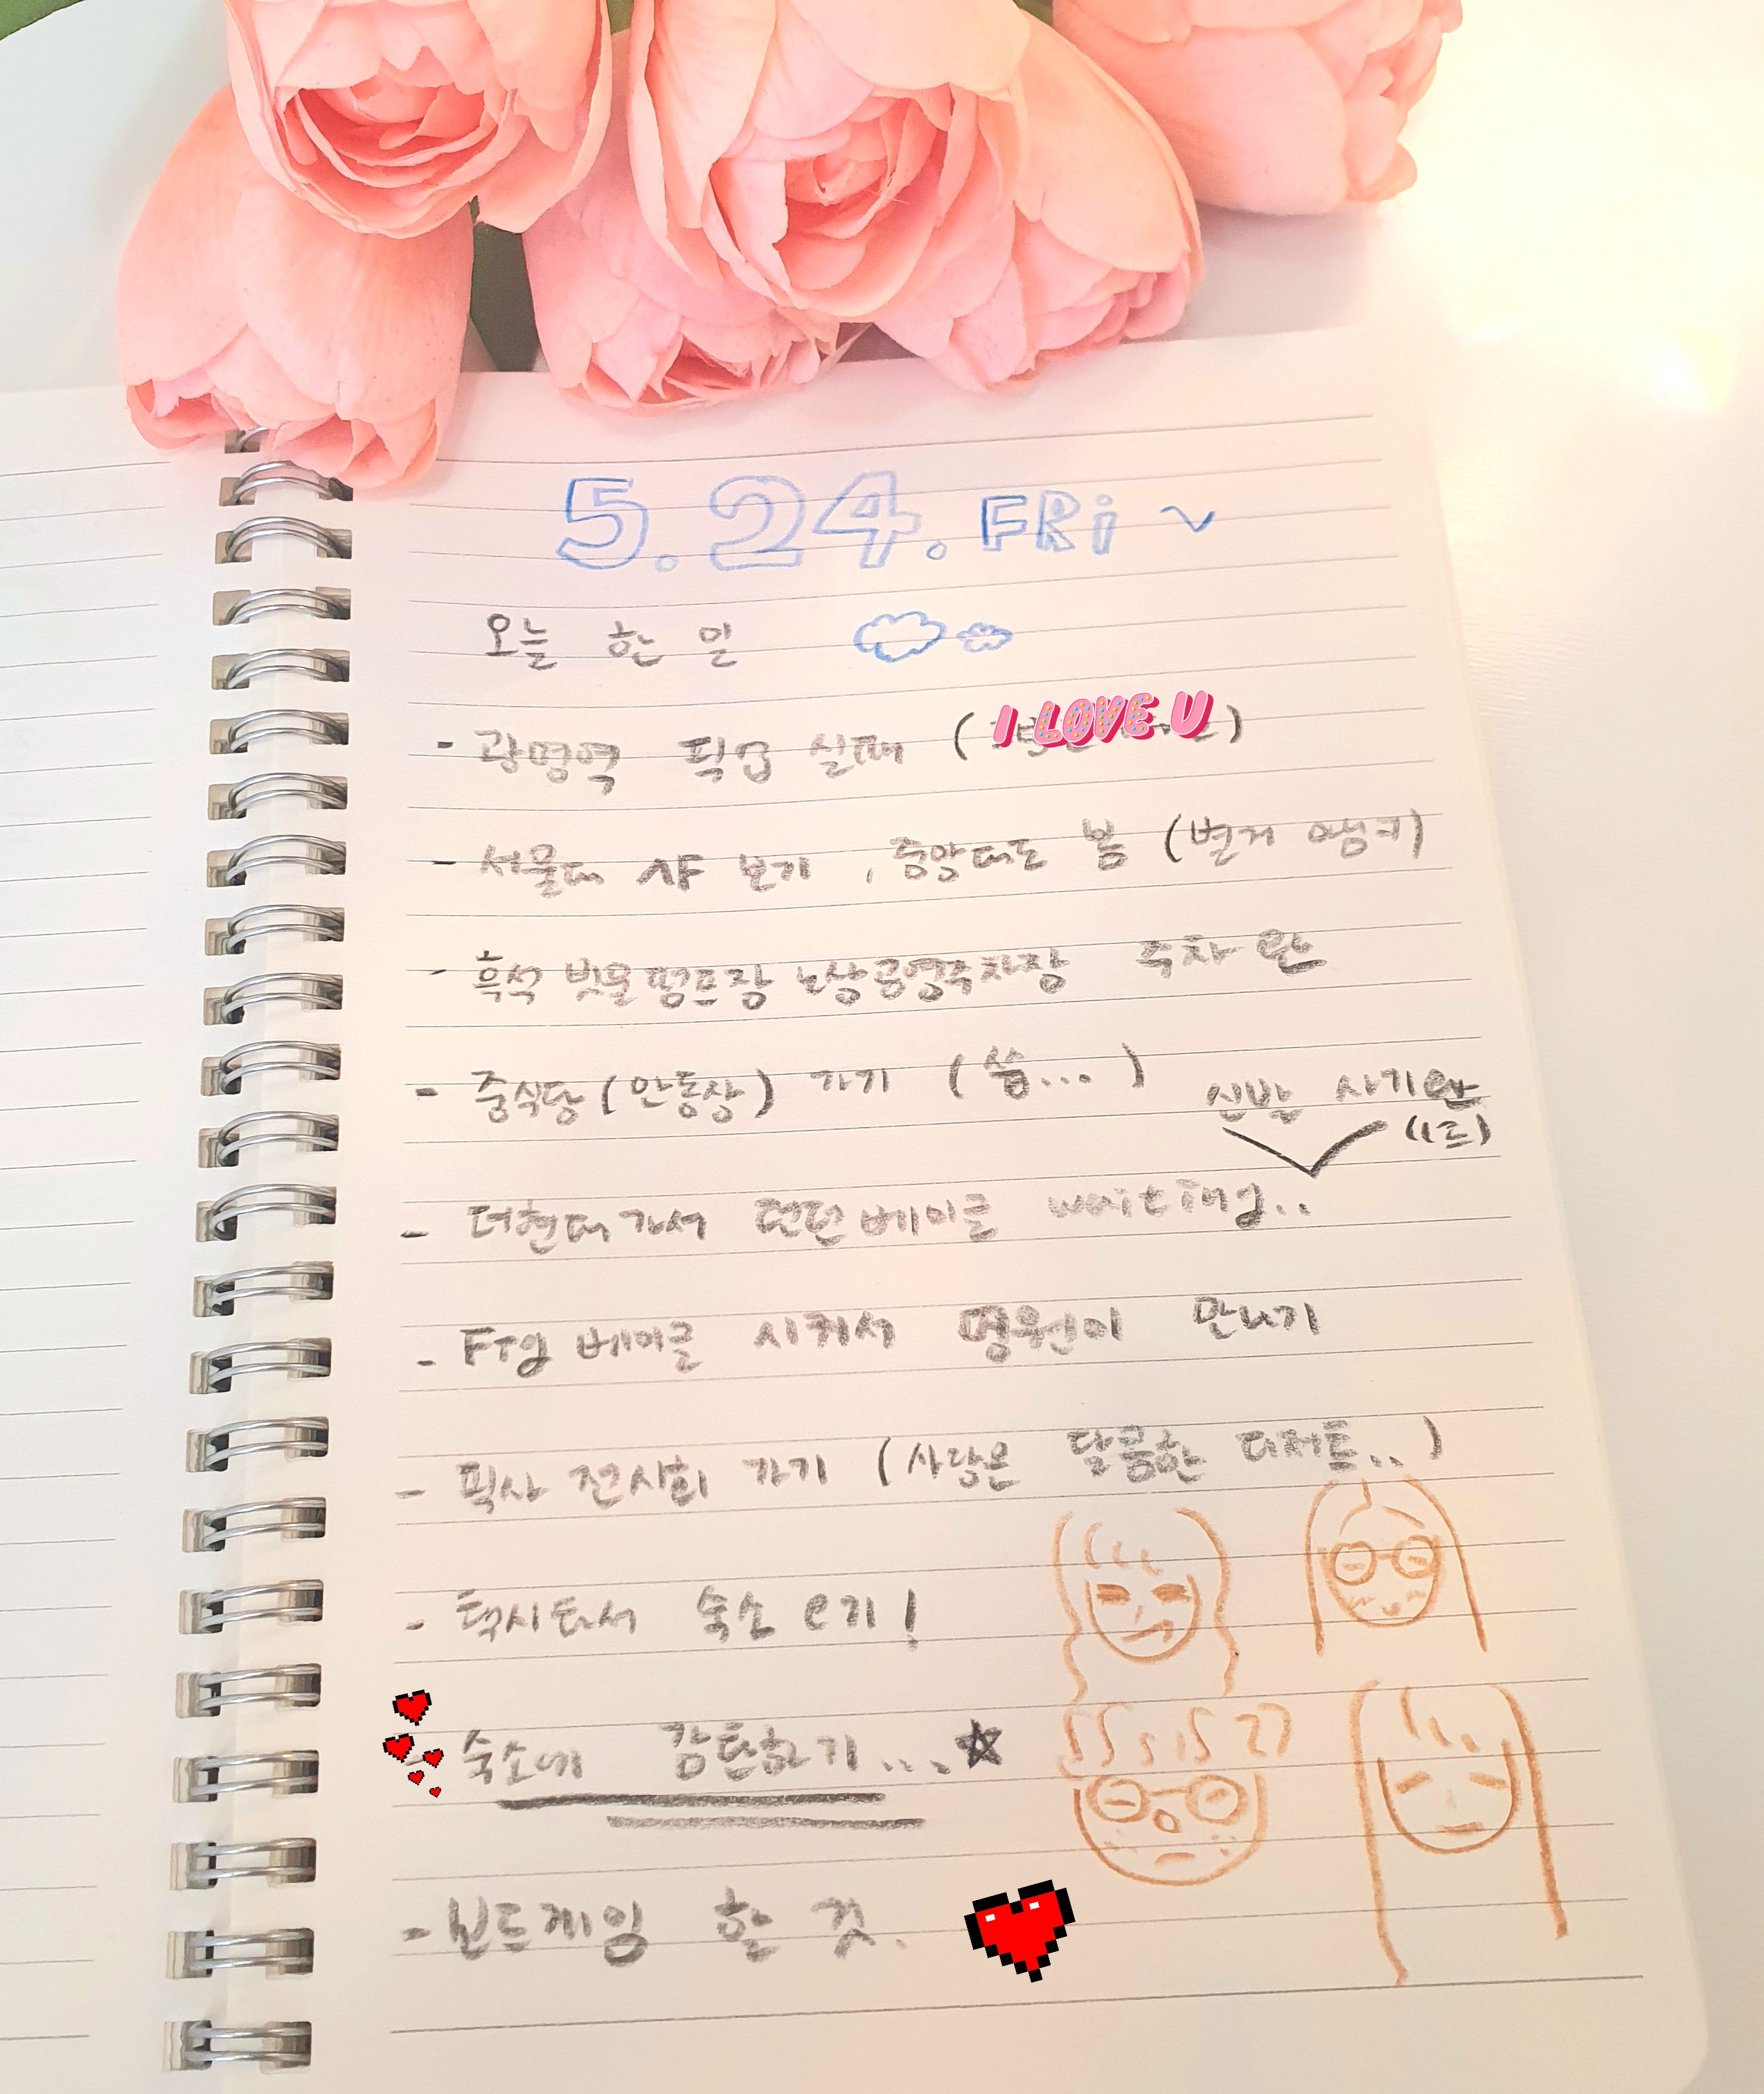 5.24.FRi ~
오늘 한 일
- 광명역 픽업 실패 ( I LOVE U )
- 서울대 AF 보기 , 중앙대도 봄 (벌거 
- 흑석 빗물펌프장 노상공영주차장 주차 완
- 중식당 (안동장) 가기 (씁...)
신발 사기 완
(1조)
- 더현대 가서 런던베이글 waiting..
- 베이글 시켜서 명원이 만나기
- 픽사 전시회 가기 (사랑은 달콤한 디저트..)
- 택시타서 숙소 e기!
숙소에 감탄하기...☆
- 보드게임 할 것.